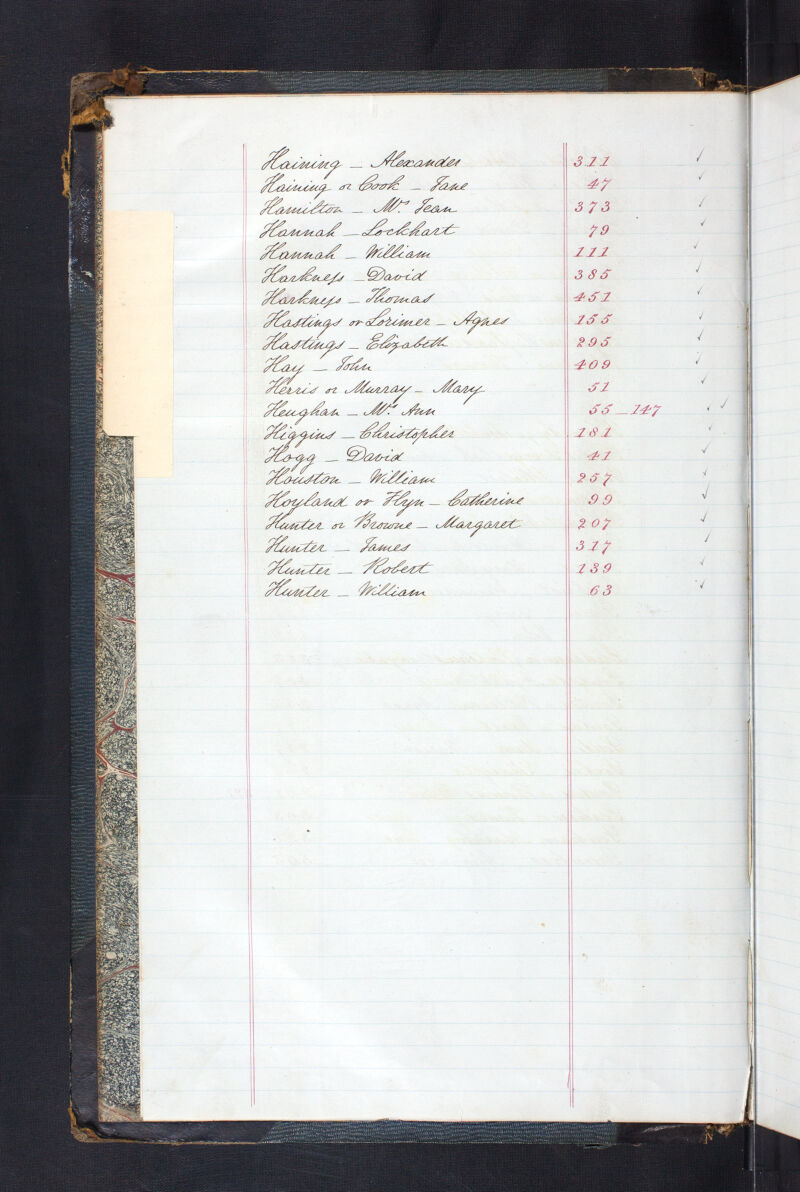 Haining – Alexander 311 ✓
Haining or Cook – Jane 47 ✓
Hamilton – Mrs Jean 373 ✓
Hannah – Lockhart 79 ✓
Hannah – William 111 ✓
Harkness – David 385 ✓
Harkness – Thomas 451 ✓
Hastings or Lorimer – Agnes 155 ✓
Hastings – Elizabeth 295 ✓
Hay – John 409 ✓
Herris or Murray – Mary 51 ✓
Heughan – Mrs Ann 55 – 147 ✓ ✓
Higgins – Christopher 181 ✓
Hogg – David 41 ✓
Houston – William 257 ✓
Hoyland or Flyn – Catherine 99 ✓
Hunter or Browne – Margaret 207 ✓
Hunter – James 317 ✓
Hunter – Robert 139 ✓
Hunter – William 63 ✓